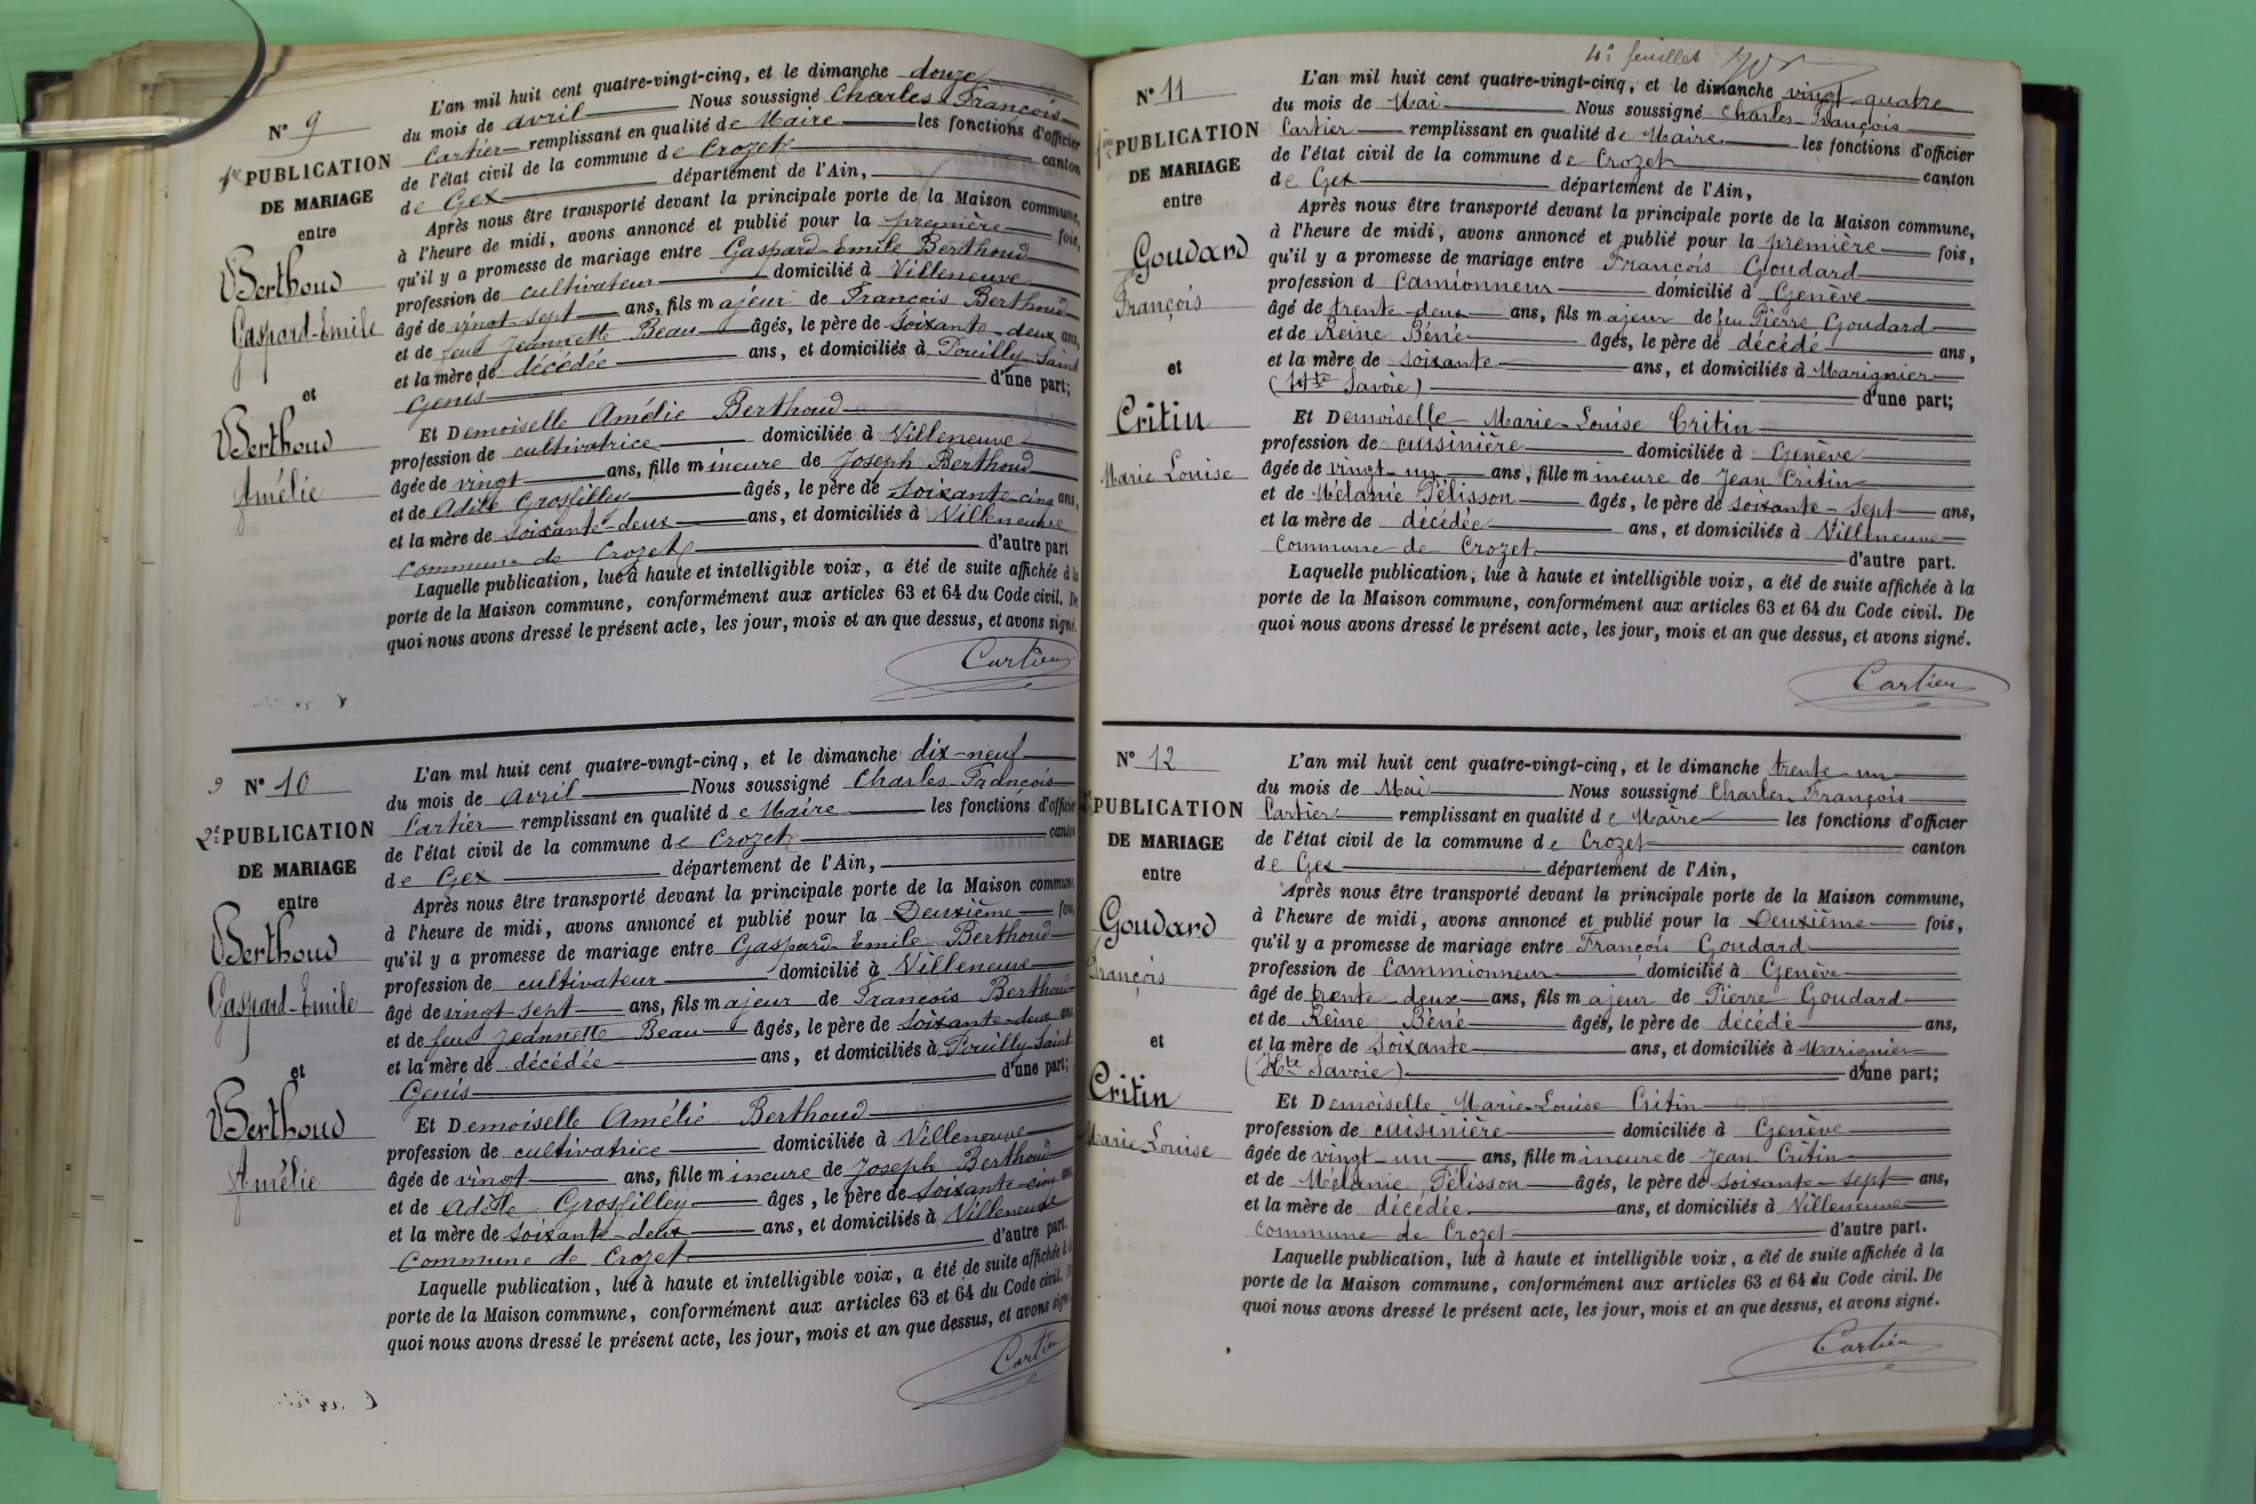 N° 9
1re PUBLICATION
DE MARIAGE
entre
Berthoud
Gaspard-Emile
et
Berthoud
Amélie
L'an mil huit cent quatre-vingt-cinq, et le dimanche douze
du mois de avril Nous soussigné Charles François
Cartier remplissant en qualité de Maire les fonctions d'officier
de l'état civil de la commune de Crozet canton
de Gex département de l'Ain,
Après nous être transporté devant la principale porte de la Maison commune,
à l'heure de midi, avons annoncé et publié pour la première fois,
qu'il y a promesse de mariage entre Gaspard-Emile Berthoud
profession de cultivateur domicilié à Villeneuve
âgé de vingt-sept ans, fils majeur de François Berthoud
et de feue Jeannette Beau âgés, le père de soixante-deux ans,
et la mère de décédée ans, et domiciliés à Pouilly-Saint
Genis d'une part;
Et Demoiselle Amélie Berthoud
profession de cultivatrice domiciliée à Villeneuve
âgée de vingt ans, fille mineure de Joseph Berthoud
et de Adèle Grosfilley âgés, le père de soixante-cinq ans,
et la mère de soixante-deux ans, et domiciliés à Villeneuve
commune de Crozet d'autre part
Laquelle publication, lue à haute et intelligible voix, a été de suite affichée à la
porte de la Maison commune, conformément aux articles 63 et 64 du Code civil. De
quoi nous avons dressé le présent acte, les jour, mois et an que dessus, et avons signé.
Cartier
9 N° 10
2e PUBLICATION
DE MARIAGE
entre
Berthoud
Gaspard-Emile
et
Berthoud
Amélie
L'an mil huit cent quatre-vingt-cinq, et le dimanche dix-neuf
du mois de avril Nous soussigné Charles François
Cartier remplissant en qualité de Maire les fonctions d'officier
de l'état civil de la commune de Crozet canton
de Gex département de l'Ain,
Après nous être transporté devant la principale porte de la Maison commune
à l'heure de midi, avons annoncé et publié pour la Deuxième fois,
qu'il y a promesse de mariage entre Gaspard Emile Berthoud
profession de cultivateur domicilié à Villeneuve
âgé de vingt-sept ans, fils majeur de François Berthoud
et de feue Jeannette Beau âgés, le père de soixante-deux ans
et la mère de décédée ans, et domiciliés à Pouilly Saint
Genis d'une part;
Et Demoiselle Amélie Berthoud
profession de cultivatrice domiciliée à Villeneuve
âgée de vingt ans, fille mineure de Joseph Berthoud
et de Adèle Grosfilley âges, le père de soixante-cinq ans
et la mère de soixante-deux ans, et domiciliés à Villeneuve
commune de Crozet d'autre part.
Laquelle publication, lue à haute et intelligible voix, a été de suite affichée à la
porte de la Maison commune, conformément aux articles 63 et 64 du Code civil. De
quoi nous avons dressé le présent acte, les jour, mois et an que dessus, et avons signé
Cartier
4e feuillet
N° 11
PUBLICATION
DE MARIAGE
entre
Goudard
François
et
Critin
Marie Louise
L'an mil huit cent quatre-vingt-cinq, et le dimanche vingt-quatre
du mois de Mai Nous soussigné Charles-François
Cartier remplissant en qualité de Maire les fonctions d'officier
de l'état civil de la commune de Crozet canton
de Gex département de l'Ain,
Après nous être transporté devant la principale porte de la Maison commune,
à l'heure de midi, avons annoncé et publié pour la première fois,
qu'il y a promesse de mariage entre François Goudard
profession d Camionneur domicilié à Genève
âgé de trente-deux ans, fils majeur de feu Pierre Goudard
et de Reine Béné âgés, le père de décédé ans,
et la mère de soixante ans, et domiciliés à Marignier
(Hte Savoie) d'une part;
Et Demoiselle Marie-Louise Critin
profession de cuisinière domiciliée à Genève
âgée de vingt-un ans, fille mineure de Jean Critin
et de Mélanie Pélisson âgés, le père de soixante-sept ans,
et la mère de décédée ans, et domiciliés à Villeneuve
commune de Crozet d'autre part.
Laquelle publication, lue à haute et intelligible voix, a été de suite affichée à la
porte de la Maison commune, conformément aux articles 63 et 64 du Code civil. De
quoi nous avons dressé le présent acte, les jour, mois et an que dessus, et avons signé.
Cartier
N° 12
PUBLICATION
DE MARIAGE
entre
Goudard
François
et
Critin
Marie Louise
L'an mil huit cent quatre-vingt-cinq, et le dimanche trente-un
du mois de Mai Nous soussigné Charles François
Cartier remplissant en qualité de Maire les fonctions d'officier
de l'état civil de la commune de Crozet canton
de Gex département de l'Ain,
Après nous être transporté devant la principale porte de la Maison commune,
à l'heure de midi, avons annoncé et publié pour la Deuxième fois,
qu'il y a promesse de mariage entre François Goudard
profession de Cammionneur domicilié à Genève
âgé de trente-deux ans, fils majeur de Pierre Goudard
et de Reine Béné âgés, le père de décédé ans,
et la mère de soixante ans, et domiciliés à Marignier
(Hte Savoie) d'une part;
Et Demoiselle Marie-Louise Critin
profession de cuisinière domiciliée à Genève
âgée de vingt-un ans, fille mineure de Jean Critin
et de Mélanie Pélisson âgés, le père de soixante-sept ans,
et la mère de décédée ans, et domiciliés à Villeneuve
commune de Crozet d'autre part.
Laquelle publication, lue à haute et intelligible voix, a été de suite affichée à la
porte de la Maison commune, conformément aux articles 63 et 64 du Code civil. De
quoi nous avons dressé le présent acte, les jour, mois et an que dessus, et avons signé.
Cartier